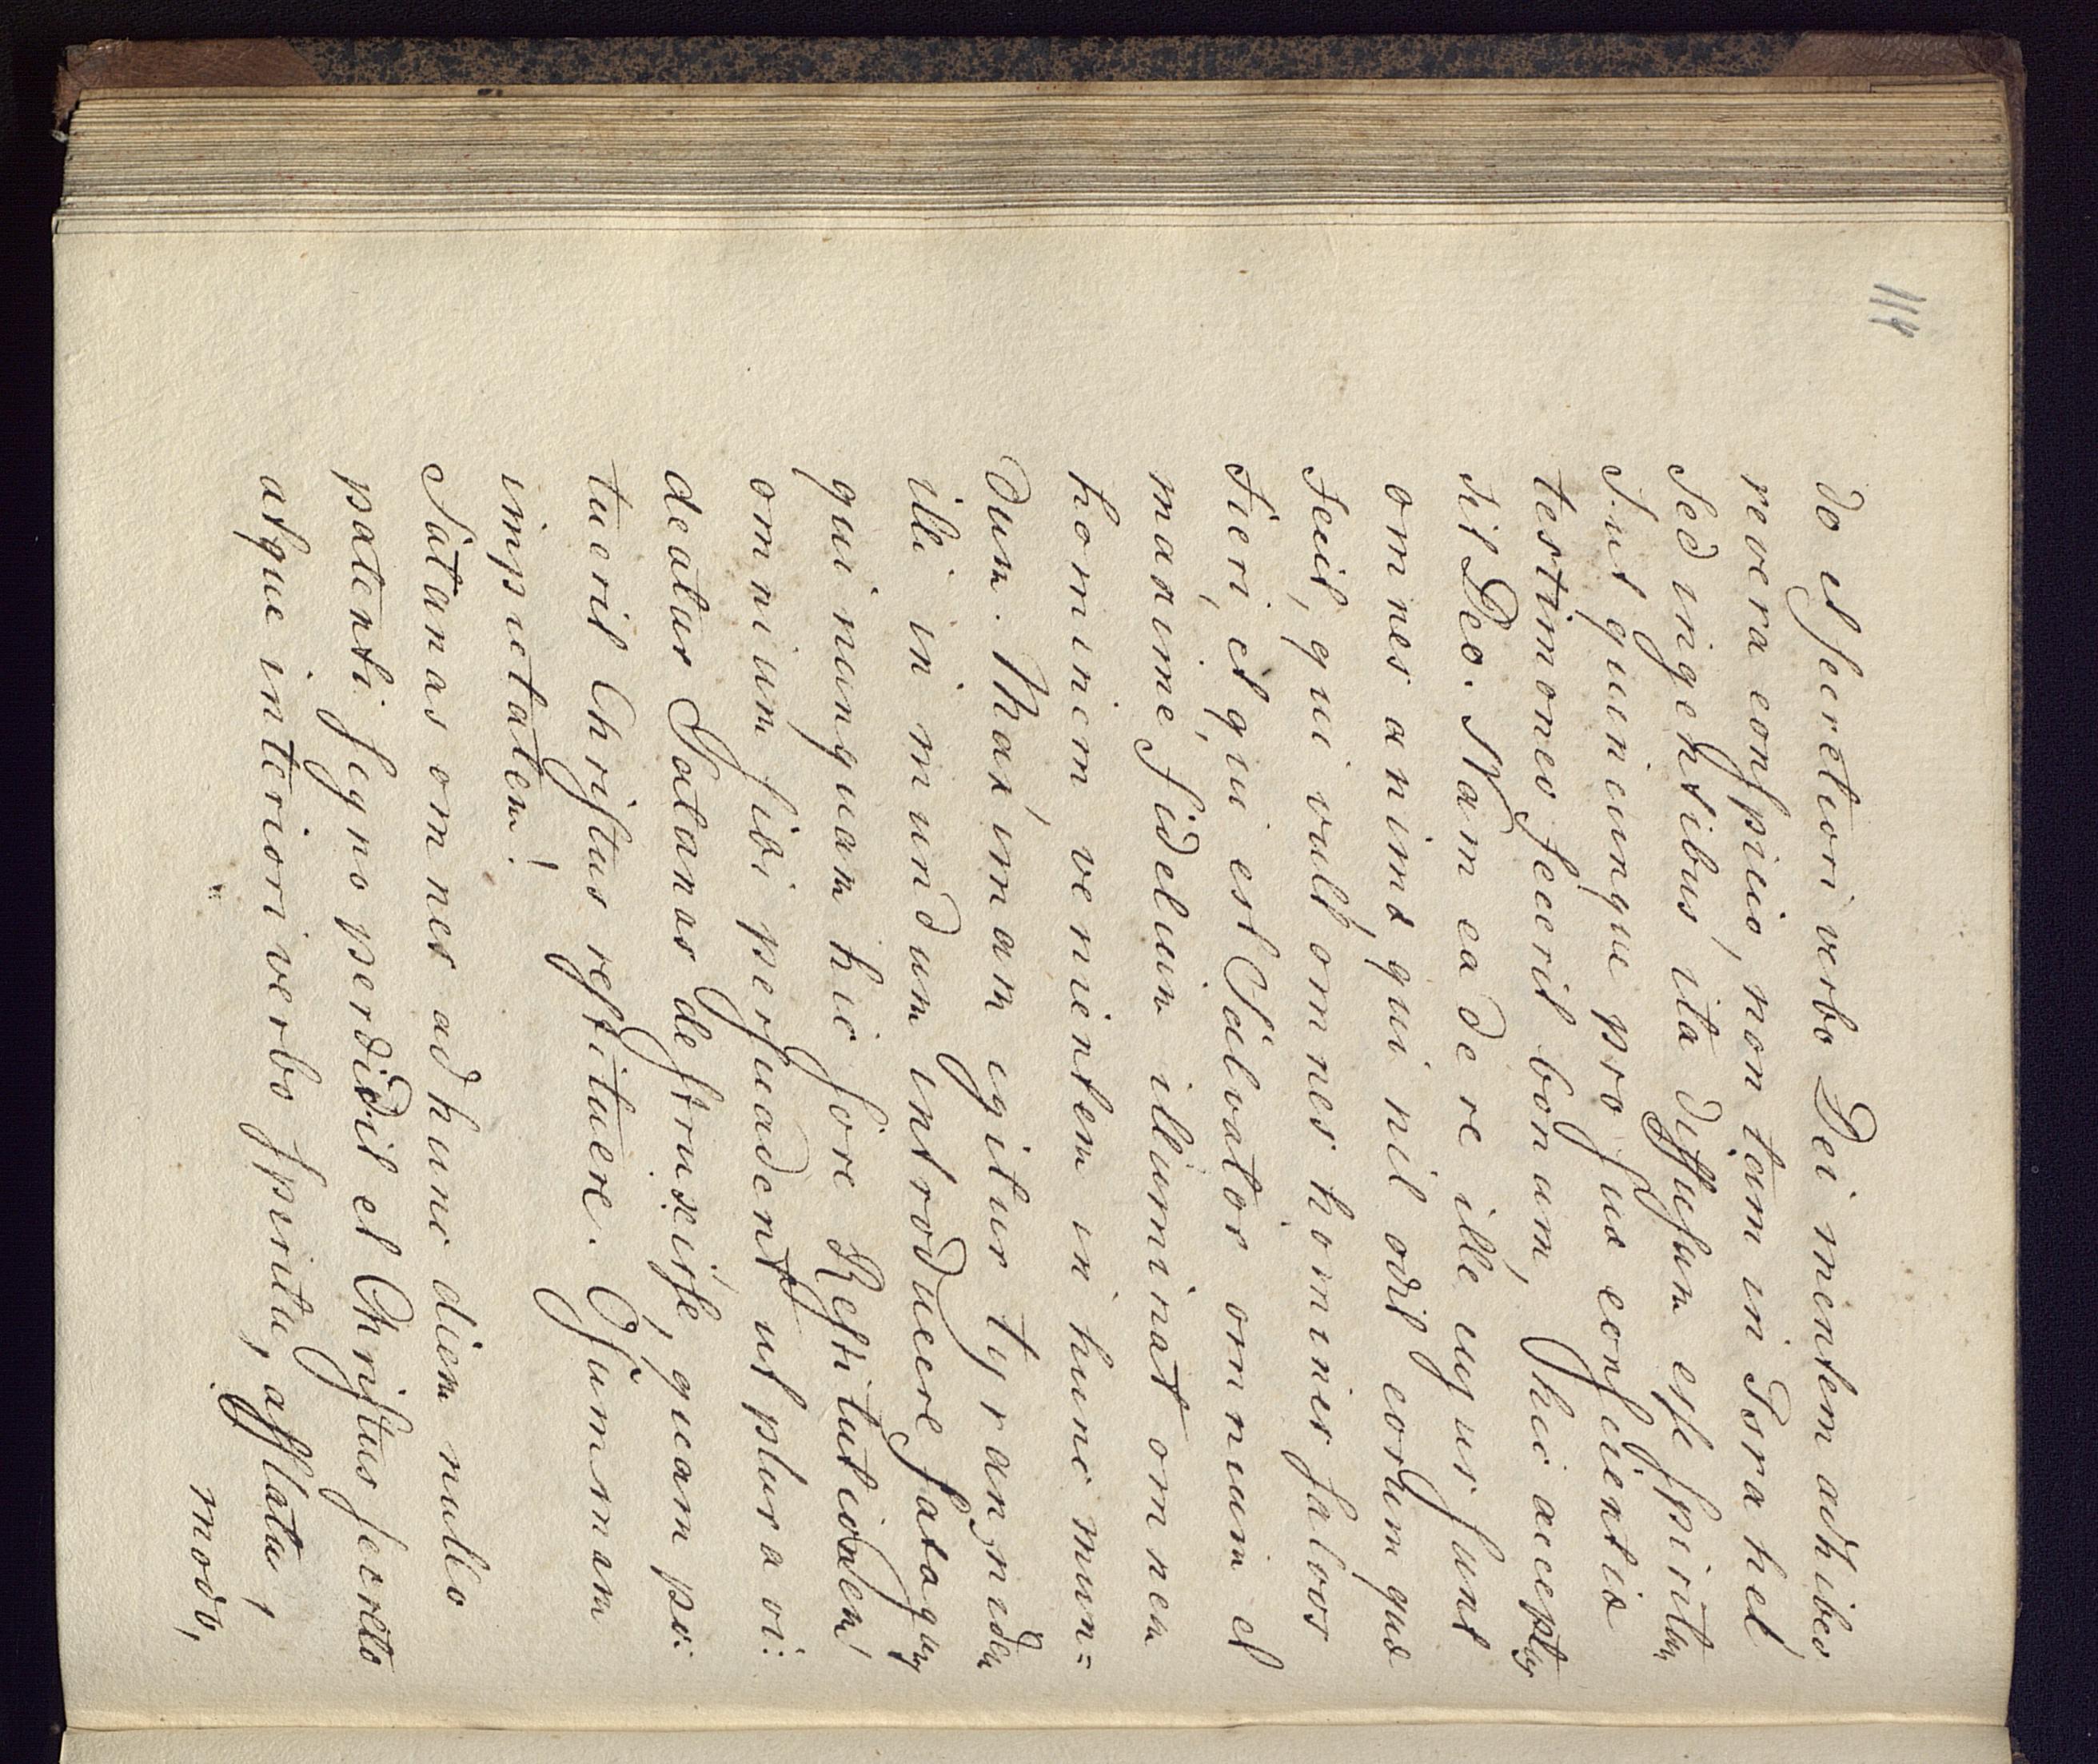 114
do et secretiori verbo Dei mentem adhibeo
revera conspicio, non tam in Israhel
sed in gentibus ita diffusum esse spiritum
sint quicunque pro suæ conscientiæ
testimonio fecerit bonum, hic acceptus
sit Deo. Nam eadere ille uguri sunt
omnes animæ qui nil odit eorum quæ
fecit, qui vult omnes homines salvos
fieri, et qui est Salvator omnium et
maxime fidelium illuminat omnem
hominem venientem in hunc mun=
dum. Maximam igitur tyrannidem
illi in mundum introducere satagunt
qui nunquam hic fore Restitutionem
omnium sibi persuadent ut plura vi:
deatur Satanas destruxisse, quam po:
tuerit Christus restituere. O summam
impietatem!
Satanas omnes ad hunc diem nullo
patenti signo perdidit et Christus secreto
atque interiori verbo spiritu, afflatu,
modo,